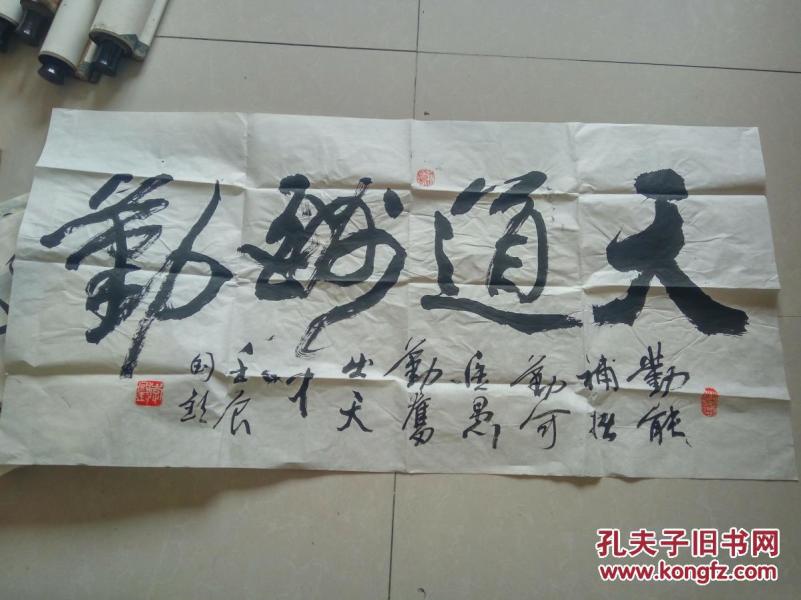 天道酬勤
勤能
補拙
勤可
医愚
勤奮
出天
才
壬辰
国
孔夫子旧书网
www.kongfz.com